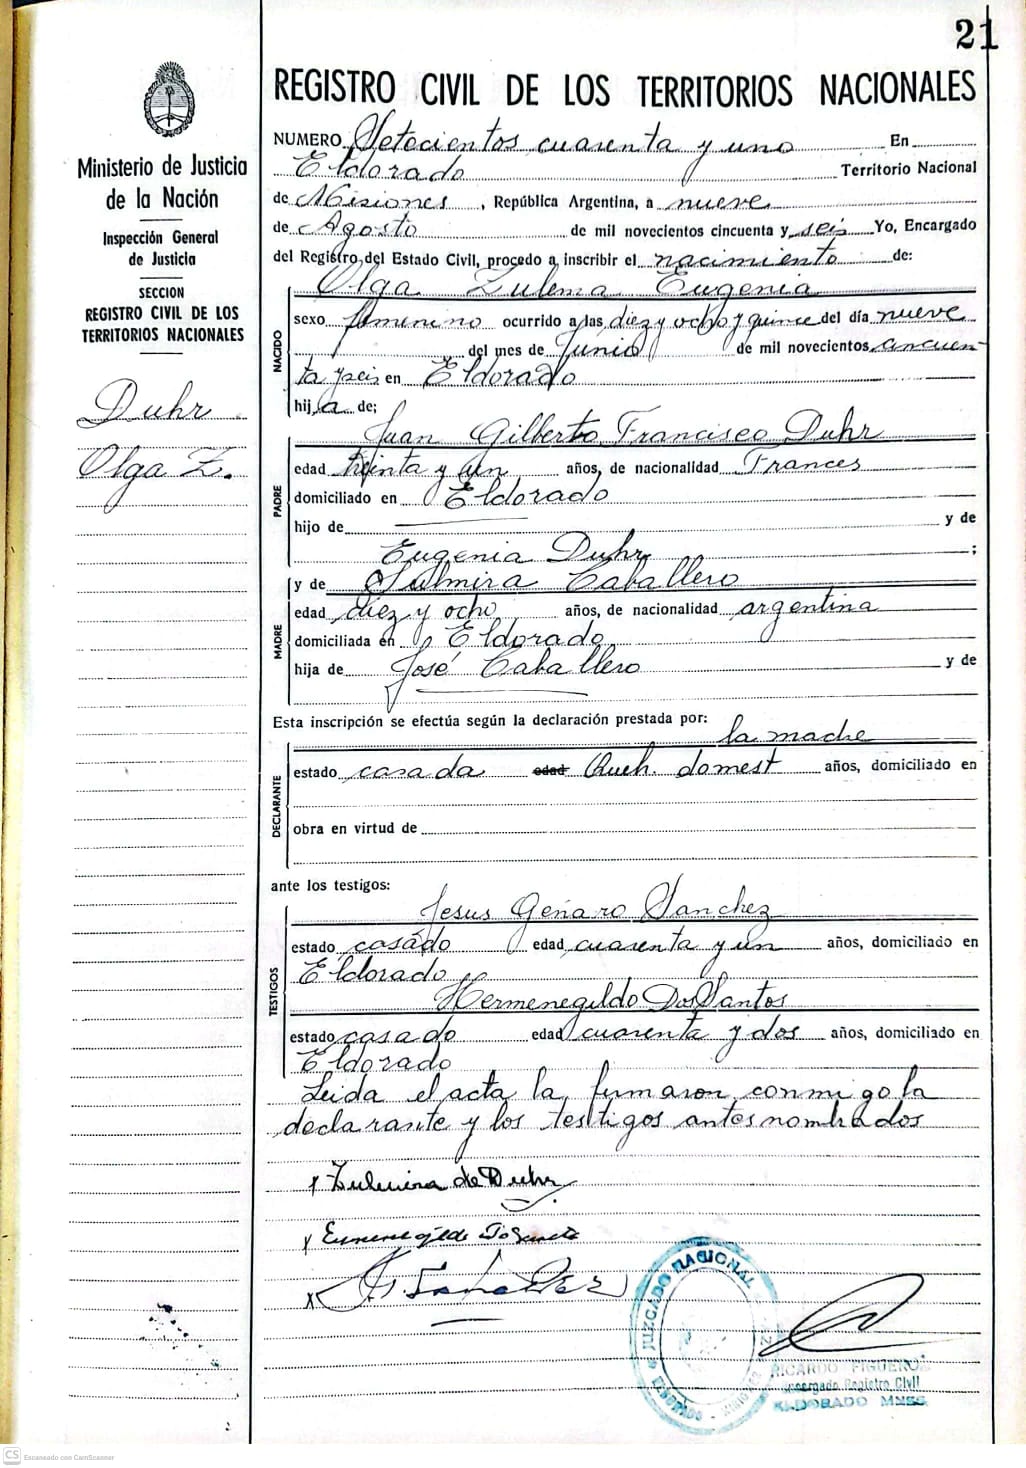 21
REGISTRO CIVIL DE LOS TERRITORIOS NACIONALES
Ministerio de Justicia
de la Nación
Inspección General
de Justicia
SECCION
REGISTRO CIVIL DE LOS
TERRITORIOS NACIONALES
Duhr
Olga Z.
NUMERO Setecientos cuarenta y uno En
Eldorado Territorio Nacional
de Misiones, República Argentina, a nueve
de Agosto de mil novecientos cincuenta y seis Yo, Encargado
del Registro del Estado Civil, procedo a inscribir el nacimiento de:
NACIDO
Olga Zulema Eugenia
sexo femenino ocurrido a las diez y ocho y quince del día nueve
del mes de Junio de mil novecientos cincuen-
ta y seis en Eldorado
hija de;
PADRE
Juan Gilberto Francisco Duhr
edad treinta y un años, de nacionalidad Frances
domiciliado en Eldorado
hijo de y de
Eugenia Duhr ;
MADRE
y de Zulmira Caballero
edad diez y ocho años, de nacionalidad argentina
domiciliada en Eldorado
hija de José Caballero y de
Esta inscripción se efectúa según la declaración prestada por:
la madre
DECLARANTE
estado casada edad Queh. domest años, domiciliado en
obra en virtud de
ante los testigos:
TESTIGOS
Jesus Genaro Sanchez
estado casado edad cuarenta y un años, domiciliado en
Eldorado
Hermenegildo Dos Santos
estado casado edad cuarenta y dos años, domiciliado en
Eldorado
Leida el acta la firmaron conmigo la
declarante y los testigos antes nombrados
x Zulmira de Duhr
x
x
JUZGADO NACIONAL
ELDORADO - MISIONES
RICARDO FIGUEROA
Encargado Registro Civil
ELDORADO MNES.
CS Escaneado con CamScanner